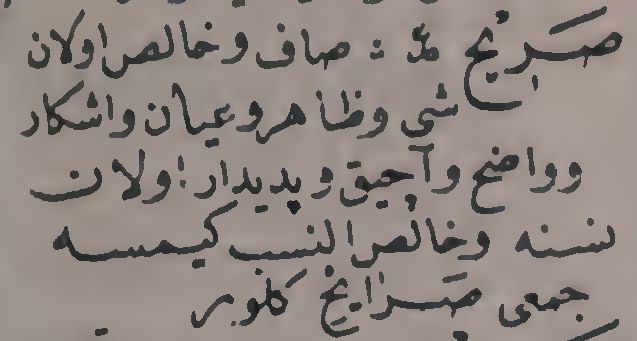 صَرِيُح مد : صاف و خالص اولان
شى وظاهر وعيان واشكار
وواضح وآچيق و پديدار اولان
نسنه وخالص النسب كيمسه
جمعى صَرَايِح كلور